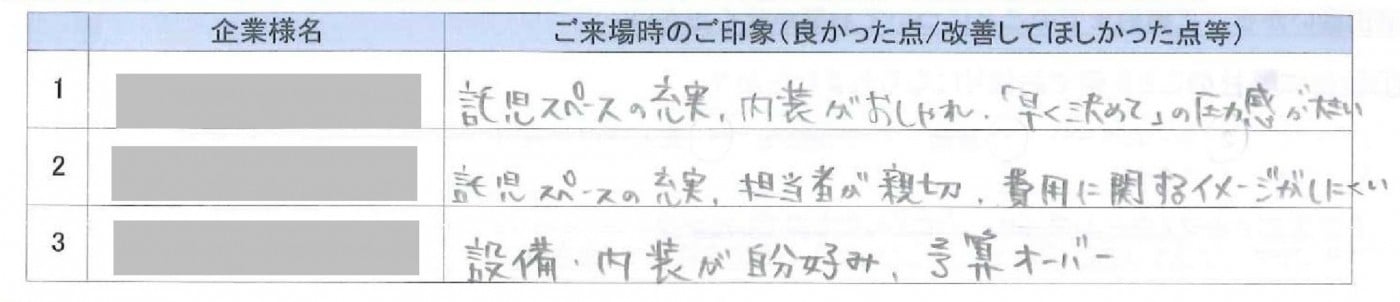 企業様名 ご来場時のご印象(良かった点/改善してほしかった点等)
1 託児スペースの充実, 内装がおしゃれ.「早く決めて」の圧力感が大きい
2 託児スペースの充実, 担当者が親切, 費用に関するイメージがしにくい
3 設備・内装が自分好み, 予算オーバー